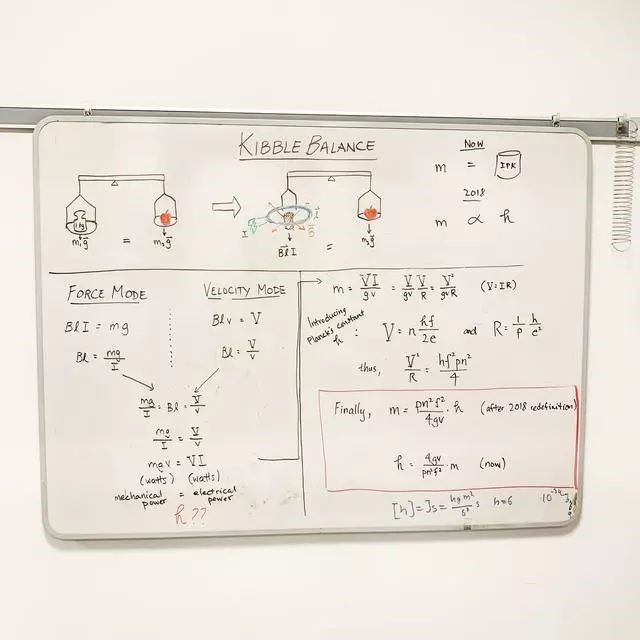 KIBBLE BALANCE
1 kg
m₁g⃗ = m₂g⃗
I l⃗ B⃗
B⃗lI = m₂g⃗
NOW
m = IPK
2018
m ∝ h
FORCE MODE
BlI = mg
Bl = mg/I
VELOCITY MODE
Blv = V
Bl = V/v
mg/I = Bl = V/v
mg/I = V/v
mgv = VI
(watts) (watts)
mechanical power = electrical power
h??
m = VI/gv = V/gv V/R = V²/gvR (V=IR)
Introducing
Planck's constant
h : V = n hf/2e and R = 1/p h/e²
thus, V²/R = hf²pn²/4
Finally, m = pn²f²/4gv · h (after 2018 redefinition)
h = 4gv/pn²f² · m (now)
[h] = Js = kg m²/s² s h=6 10⁻³⁴ J